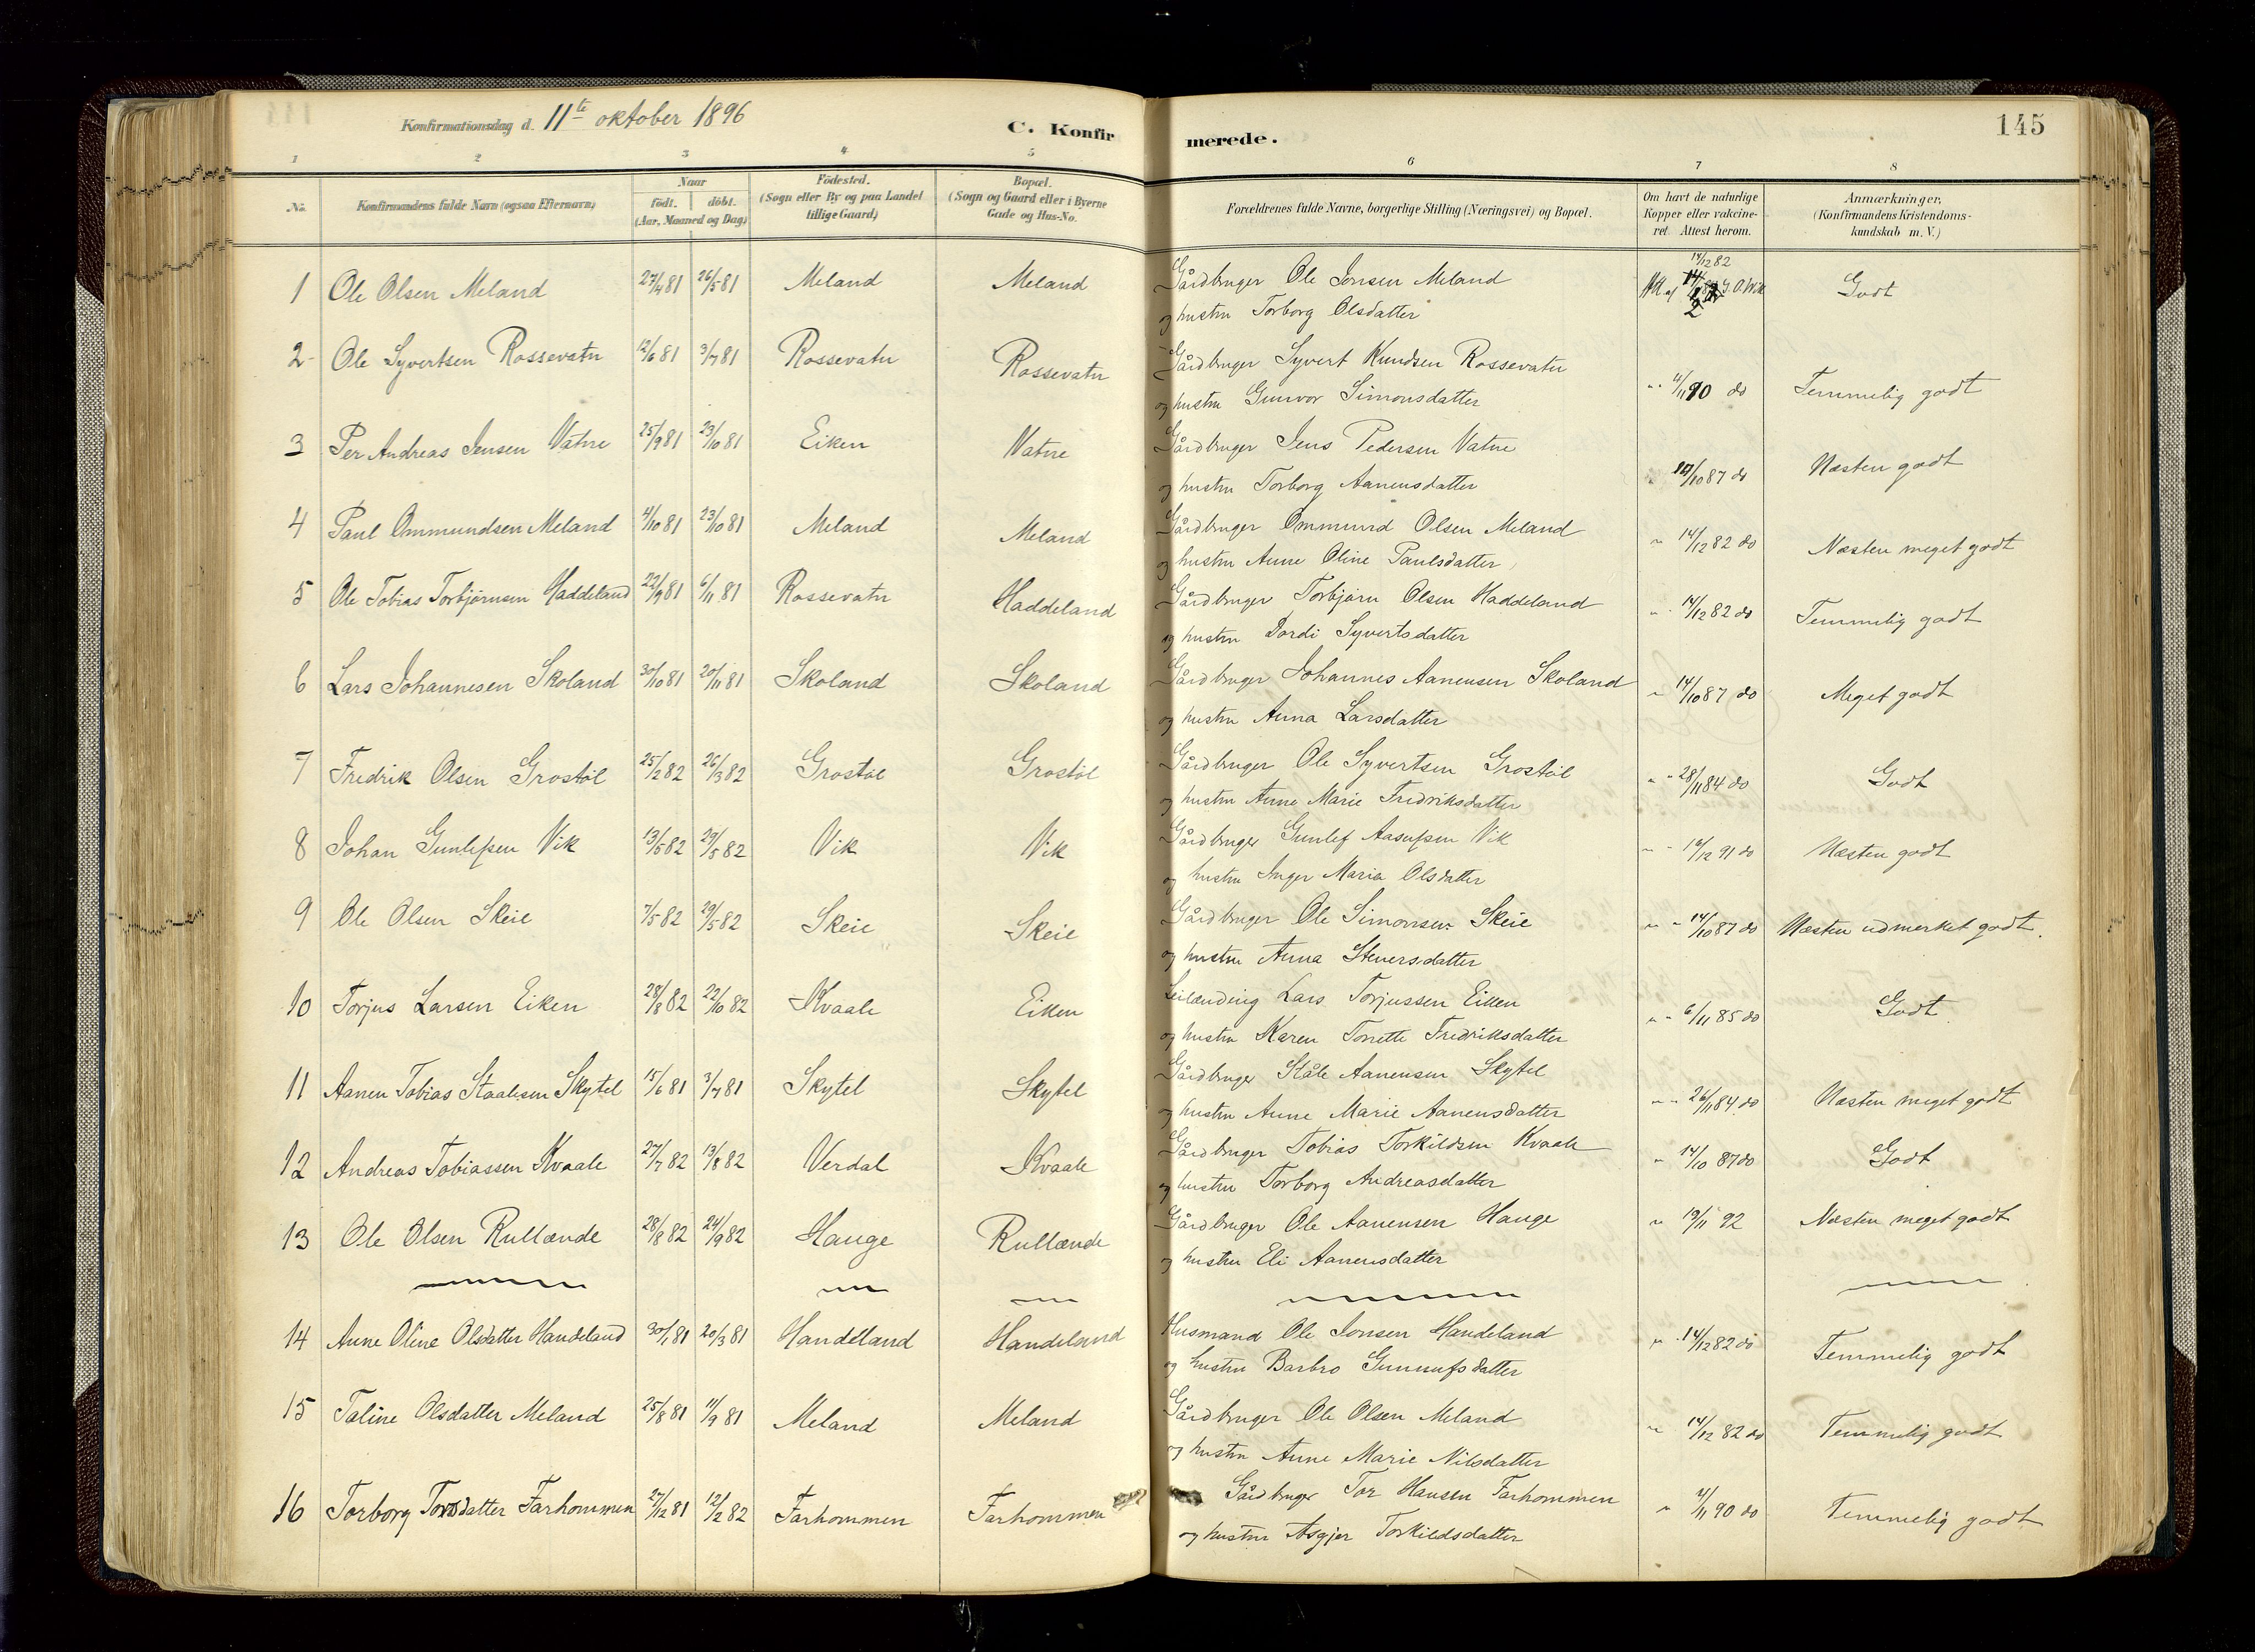 145
Konfirmationsdag d. 11te oktober 1896
C. Konfirmerede.
1 2 3 4 5 6 7 8
No. Konfirmandens fulde Navn (ogsaa Efternavn) Naar födt. döbt. (Aar, Maaned og Dag) Födested. (Sogn eller By og paa Landet tillige Gaard) Bopæl. (Sogn og Gaard eller i Byerne Gade og Hus-No. Forældrenes fulde Navne, borgerlige Stilling (Næringsvei) og Bopæl. Om havt de naturlige Kopper eller vakcineret. Attest herom. Anmærkninger, (Konfirmandens Kristendomskundskab m. V.)
1 Ole Olsen Meland 27/4 81 26/5 81 Meland Meland Gårdbruger Ole Jonsen Meland 14/12 82 Godt
og hustru Torborg Olsdatter
2 Ole Syvertsen Rossevatn 12/6 81 3/7 81 Rossevatn Rossevatn Gårdbruger Syvert Knudsen Rossevatn
og hustru Gunvor Simonsdatter 4/11 90 do Temmelig godt
3 Per Andreas Jensen Vatne 25/9 81 23/10 81 Eiken Vatne Gårdbruger Jens Pedersen Vatne
og hustru Torborg Aanensdatter 14/10 87 do Næsten godt
4 Paul Ommundsen Meland 4/10 81 23/10 81 Meland Meland Gårdbruger Ommund Olsen Meland
og hustru Anne Oline Paulsdatter 14/12 82 do Næsten meget godt
5 Ole Tobias Torbjørnsen Haddeland 22/9 81 6/11 81 Rossevatn Haddeland Gårdbruger Torbjørn Olsen Haddeland
og hustru Dordi Syvertsdatter 14/12 82 do Temmelig godt
6 Lars Johannesen Skoland 30/10 81 20/11 81 Skoland Skoland Gårdbruger Johannes Aanensen Skoland
og hustru Anna Larsdatter 14/10 87 do Meget godt
7 Fredrik Olsen Grostøl 25/2 82 26/3 82 Grostøl Grostøl Gårdbruger Ole Syvertsen Grostøl
og hustru Anne Marie Fredriksdatter 28/11 84 do Godt
8 Johan Gunlefsen Vik 13/5 82 29/5 82 Vik Vik Gårdbruger Gunlef Aasufsen Vik
og hustru Inger Maria Olsdatter 16/12 91 do Næsten godt
9 Ole Olsen Skeie 7/5 82 29/5 82 Skeie Skeie Gårdbruger Ole Simonsen Skeie
og hustru Anna Stenersdatter 14/10 87 do Næsten udmerket godt.
10 Torjus Larsen Eiken 28/8 82 22/10 82 Kvaale Eiken Leilænding Lars Torjussen Eiken
og hustru Karen Tonette Fredriksdatter 6/11 85 do Godt
11 Aanen Tobias Staalesen Skytel 15/6 81 3/7 81 Skytel Skytel Gårdbruger Ståle Aanensen Skytel
og hustru Anne Marie Aanensdatter 26/11 84 do Næsten meget godt
12 Andreas Tobiassen Kvaale 27/7 82 13/8 82 Verdal Kvaale Gårdbruger Tobias Torkildsen Kvaale
og hustru Torborg Andreasdatter 14/10 87 do Godt
13 Ole Olsen Rullænde 28/8 82 24/9 82 Hauge Rullænde Gårdbruger Ole Aanensen Hauge 19/11 92 Næsten meget godt
og hustru Eli Aanensdatter
14 Anne Oline Olsdatter Handeland 30/1 81 20/3 81 Handeland Handeland Husmand Ole Jonsen Handeland
og hustru Barbro Gunnufsdatter 14/12 82 do Temmelig godt
15 Taline Olsdatter Meland 25/8 81 11/9 81 Meland Meland Gårdbruger Ole Olsen Meland
og hustru Anne Marie Nilsdatter 14/12 82 do Temmelig godt
16 Torborg Torsdatter Farhommen 27/12 81 12/2 82 Farhommen Farhommen Gårdbruger Tor Hansen Farhommen
og hustru Asgjer Torkildsdatter 4/11 90 do Temmelig godt